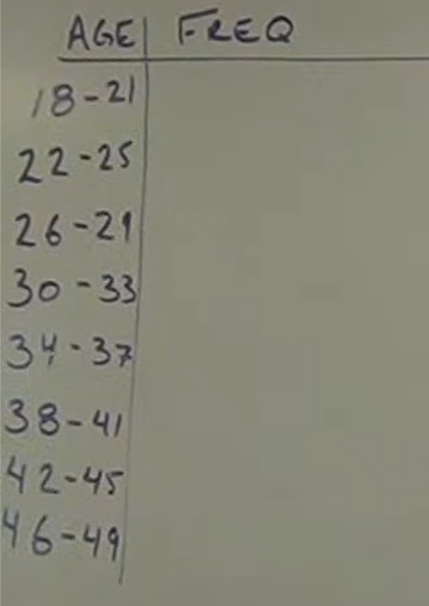 AGE FREQ
18-21
22-25
26-29
30-33
34-37
38-41
42-45
46-49